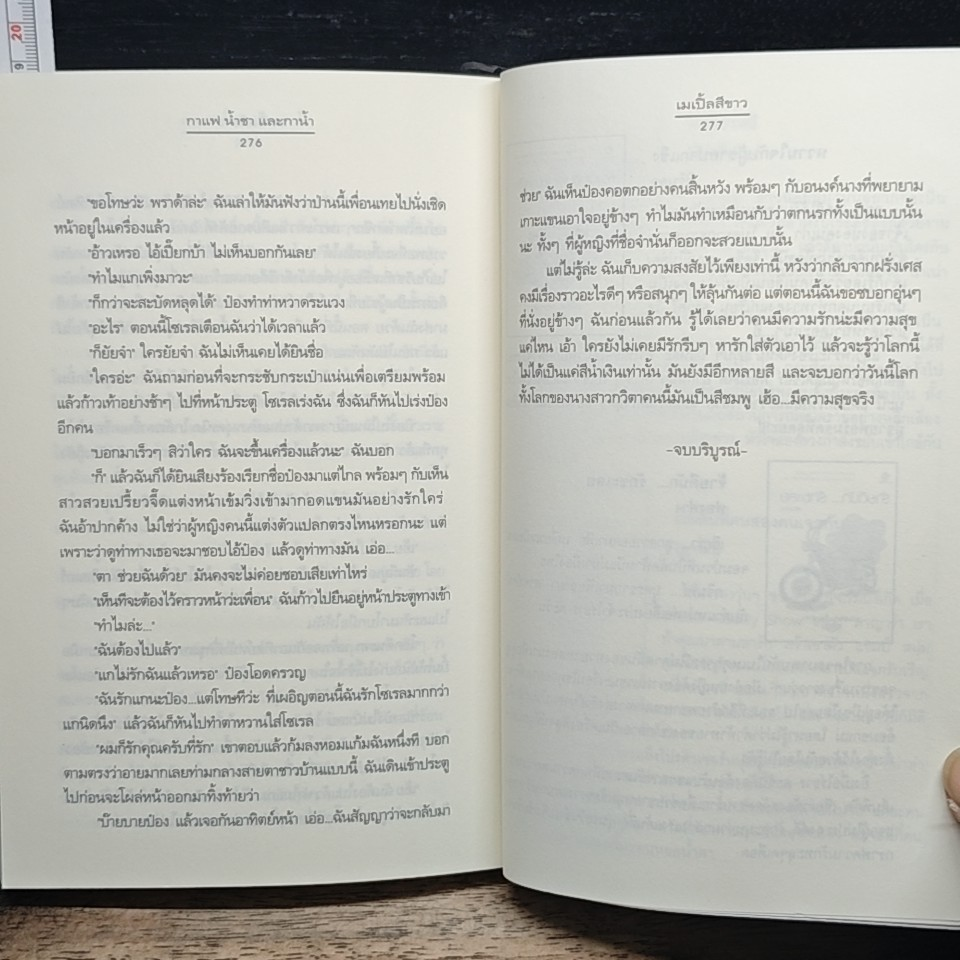 20
9
กาแฟ น้ำชา และกาน้ำ
276
"ขอโทษว่ะ พราด้าล่ะ" ฉันเล่าให้มันฟังว่าป่านนี้เพื่อนเทยไปนั่งเชิด
หน้าอยู่ในเครื่องแล้ว
"อ้าวเหรอ ไอ้เปี๊ยกบ้า ไม่เห็นบอกกันเลย"
"ทำไมแกเพิ่งมาวะ"
"ก็กว่าจะสะบัดหลุดได้" ป๋องทำท่าหวาดระแวง
"อะไร" ตอนนี้โซเรลเตือนฉันว่าได้เวลาแล้ว
"ก็ยัยจำ" ใครยัยจำ ฉันไม่เห็นเคยได้ยินชื่อ
"ใครอ่ะ" ฉันถามก่อนที่จะกระชับกระเป๋าแน่นเพื่อเตรียมพร้อม
แล้วก้าวเท้าอย่างช้าๆ ไปที่หน้าประตู โซเรลเร่งฉัน ซึ่งฉันก็หันไปเร่งป๋อง
อีกคน
"บอกมาเร็วๆ สิว่าใคร ฉันจะขึ้นเครื่องแล้วนะ" ฉันบอก
"ก็" แล้วฉันก็ได้ยินเสียงร้องเรียกชื่อป๋องมาแต่ไกล พร้อมๆ กับเห็น
สาวสวยเปรี้ยวจี๊ดแต่งหน้าเข้มวิ่งเข้ามากอดแขนมันอย่างรักใคร่
ฉันอ้าปากค้าง ไม่ใช่ว่าผู้หญิงคนนี้แต่งตัวแปลกตรงไหนหรอกนะ แต่
เพราะว่าดูท่าทางเธอจะมาชอบไอ้ป๋อง แล้วดูท่าทางมัน เอ่อ...
"ตา ช่วยฉันด้วย" มันคงจะไม่ค่อยชอบเสียเท่าไหร่
"เห็นทีจะต้องไว้คราวหน้าว่ะเพื่อน" ฉันก้าวไปยืนอยู่หน้าประตูทางเข้า
"ทำไมล่ะ..."
"ฉันต้องไปแล้ว"
"แกไม่รักฉันแล้วเหรอ" ป๋องโอดครวญ
"ฉันรักแกนะป๋อง...แต่โทษทีว่ะ ที่เผอิญตอนนี้ฉันรักโซเรลมากกว่า
แกนิดนึง" แล้วฉันก็หันไปทำตาหวานใส่โซเรล
"ผมก็รักคุณครับที่รัก" เขาตอบแล้วก้มลงหอมแก้มฉันหนึ่งที บอก
ตามตรงว่าอายมากเลยท่ามกลางสายตาชาวบ้านแบบนี้ ฉันเดินเข้าประตู
ไปก่อนจะโผล่หน้าออกมาทิ้งท้ายว่า
"บ๊ายบายป๋อง แล้วเจอกันอาทิตย์หน้า เอ่อ...ฉันสัญญาว่าจะกลับมา
เมเปิ้ลสีขาว
277
ช่วย" ฉันเห็นป๋องคอตกอย่างคนสิ้นหวัง พร้อมๆ กับอนงค์นางที่พยายาม
เกาะแขนเอาใจอยู่ข้างๆ ทำไมมันทำเหมือนกับว่าตกนรกทั้งเป็นแบบนั้น
นะ ทั้งๆ ที่ผู้หญิงที่ชื่อจำนั่นก็ออกจะสวยแบบนั้น
แต่ไม่รู้ล่ะ ฉันเก็บความสงสัยไว้เพียงเท่านี้ หวังว่ากลับจากฝรั่งเศส
คงมีเรื่องราวอะไรดีๆ หรือสนุกๆ ให้ลุ้นกันต่อ แต่ตอนนี้ฉันขอซบอกอุ่นๆ
ที่นั่งอยู่ข้างๆ ฉันก่อนแล้วกัน รู้ได้เลยว่าคนมีความรักน่ะมีความสุข
แค่ไหน เอ้า ใครยังไม่เคยมีรักรีบๆ หารักใส่ตัวเอาไว้ แล้วจะรู้ว่าโลกนี้
ไม่ได้เป็นแค่สีน้ำเงินเท่านั้น มันยังมีอีกหลายสี และจะบอกว่าวันนี้โลก
ทั้งโลกของนางสาวกวิตาคนนี้มันเป็นสีชมพู เฮ้อ...มีความสุขจริง
-จบบริบูรณ์-